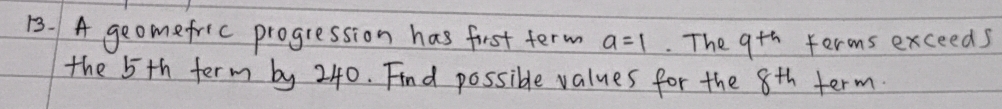 13. A geometric progression has first term a=1. The 9th terms exceeds
the 5th term by 240. Find possible values for the 8th term.